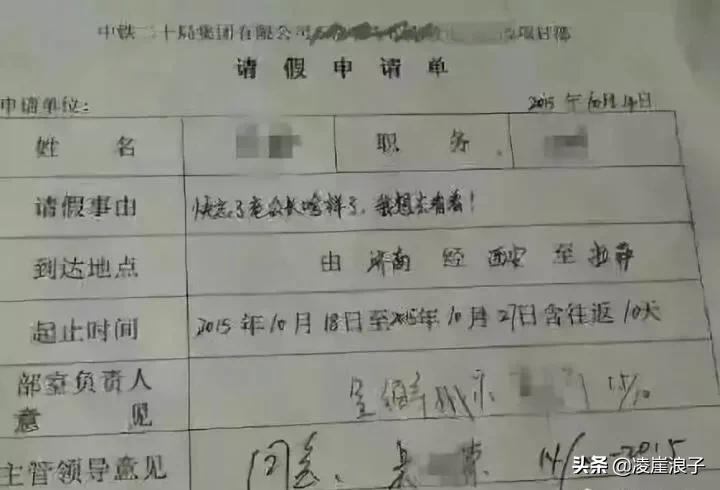 中铁二十局集团有限公司 项目部
请假申请单
申请单位： 2015年10月14日
姓名 职务
请假事由 快忘了老公长啥样了，我想去看看！
到达地点 由 济南 经 西安 至 拉萨
起止时间 2015年10月18日至2015年10月27日含往返10天
部室负责人
意见 15/10
主管领导意见 同意、 14/ -2015
头条 @凌崖浪子